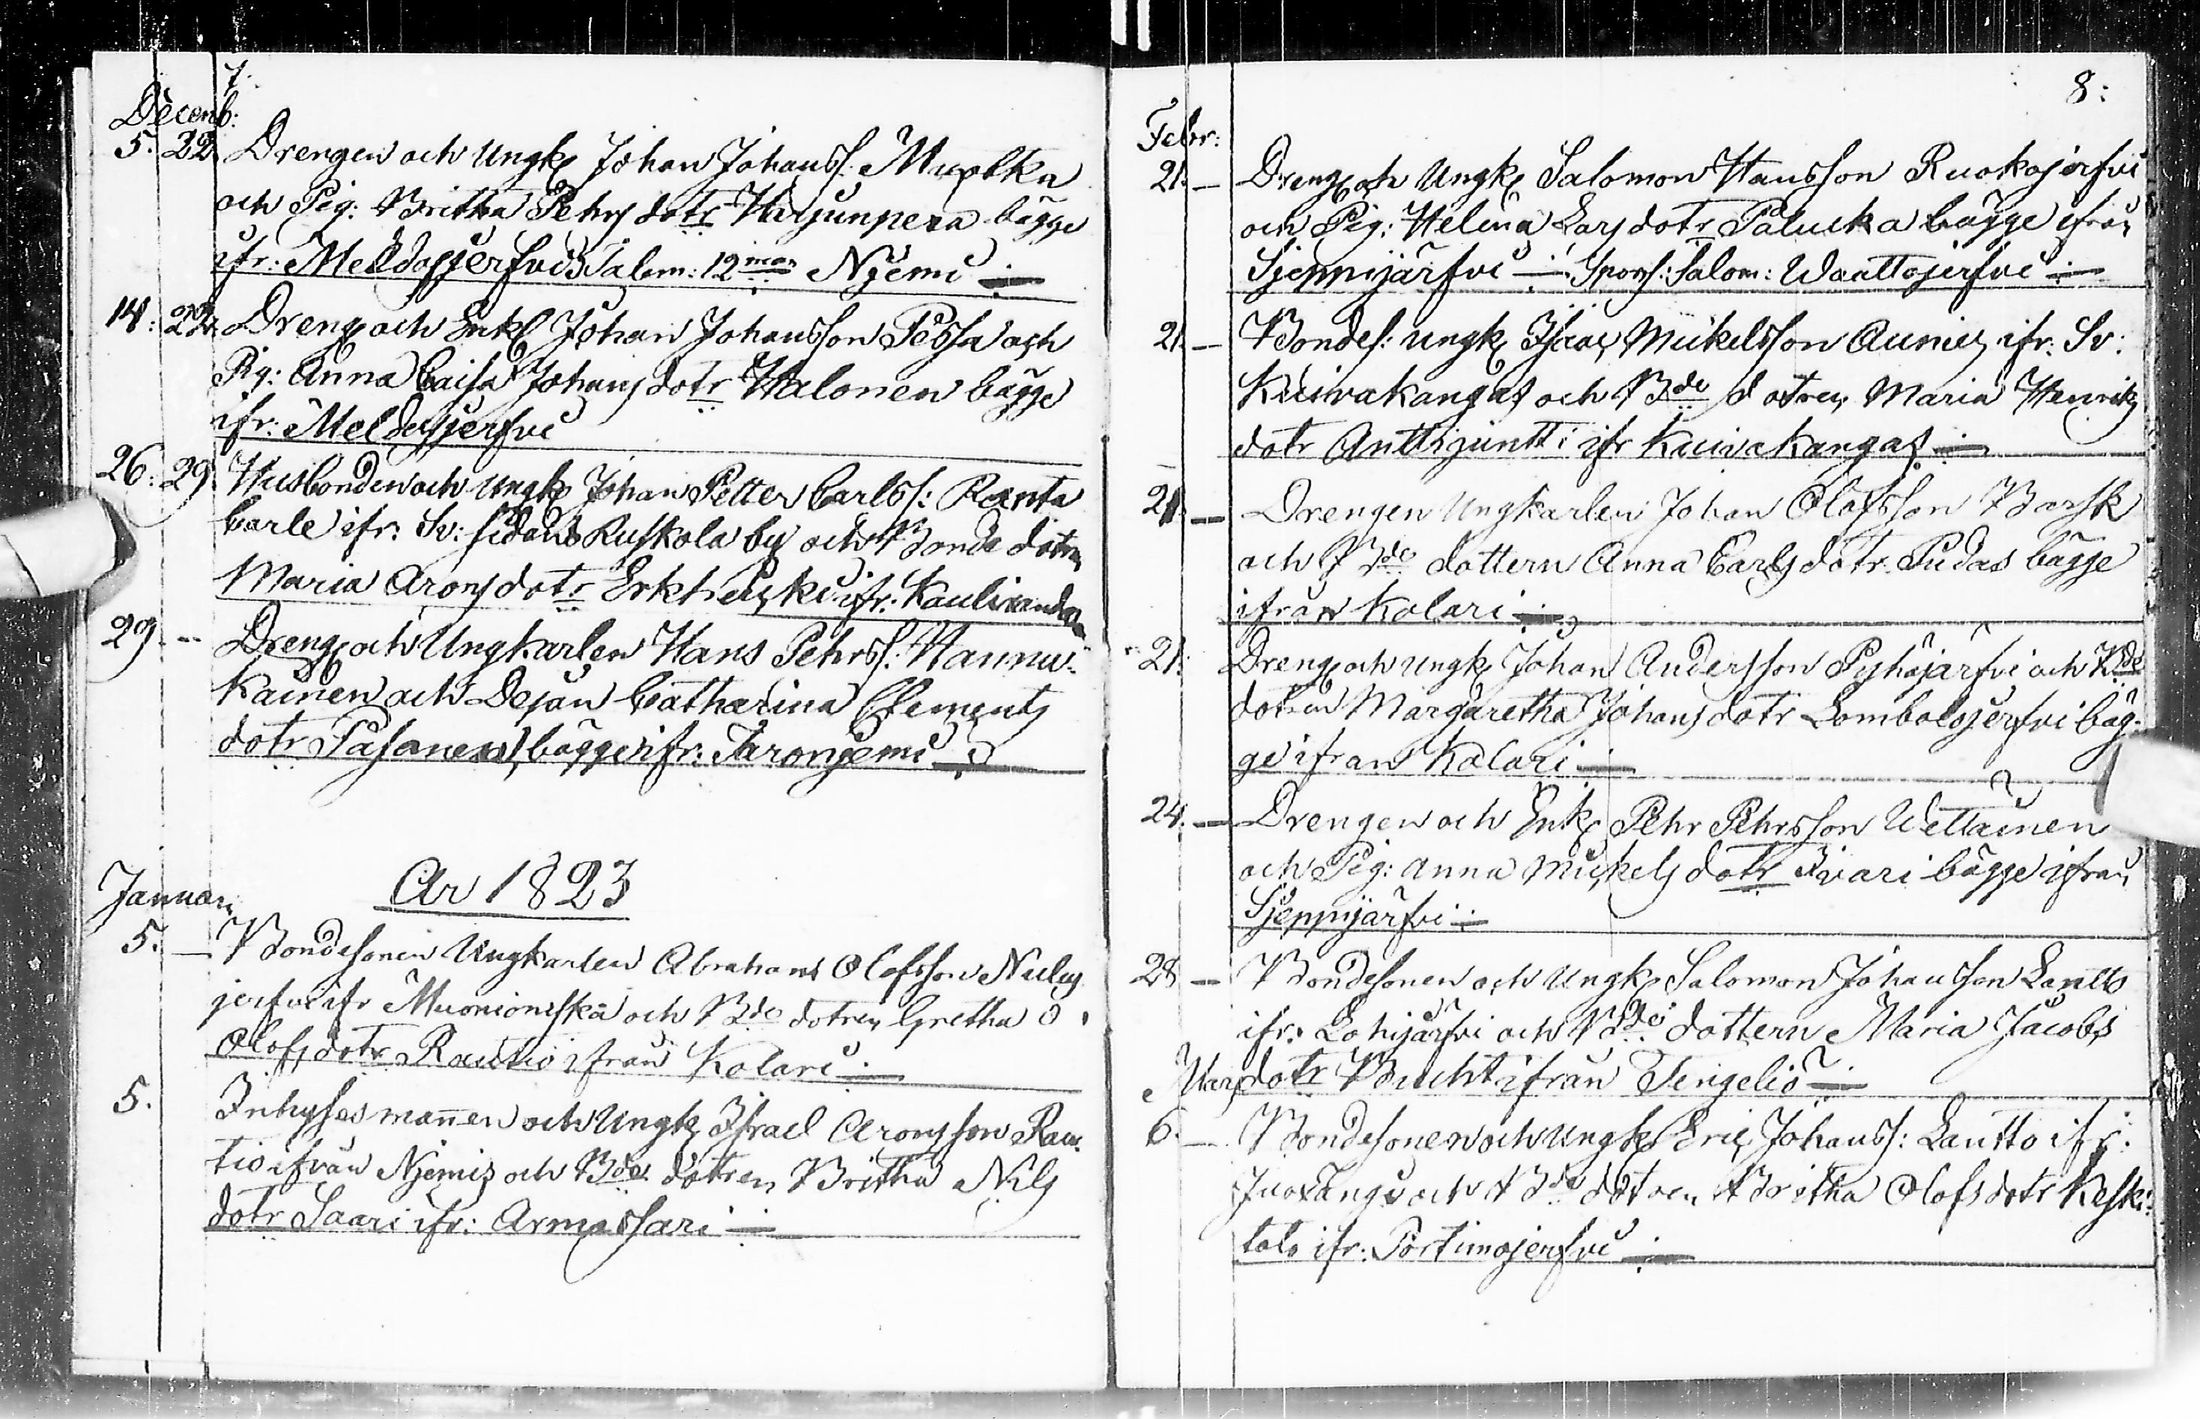 7.
Decemb:
5. 22. Drengen och Ungk Johan Johanss: Muotka
och Pig: Britha Pehrs dotr Harjunpera bägge
ifr: Meldosjerfvi Salom: 12 mar Njemi
14: 22. Dreng och Enkl Johan Johansson Pessa och
Pig: Anna Caisa Johans dotr Halonen bägge
ifr: Meldosjerfvi
26: 29. Husbonden och Ungk Johan Petter Carlss: Renta
Carle ifr: Sv: sidans Ruskola by och Bonde dotren
Maria Arons dotr ifr: Kauliranda
29. -- Dreng och Ungkarlen Hans Pehrss: Hannu-
kainen och Dejan Catharina Clements
dotr Pasanen, bägge ifr: Turonjemi
År 1823
Januari
5. — Bondesonen Ungkarlen Abraham Olofsson
jerfvi ifr Muonioniska och Bde dotren Gretha
Olofs dotr Rautio ifrån Kolari
5. Inhyses mannen och Ungk Israel Aronsson Rau-
tio ifrån Njemis och Bde dotren Britha Nils
dotr Saari ifr: Armassari
8:
Febr:
21. — Dreng och Ungk Salomon Hansson Ruokojerfvi
och Pig: Helena Lars dotr Palucka bägge ifrån
Sjeppijärfvi Spors: Salom: Waattojerfvi
21. — Bondes: Ungk Isaac Mickelsson Aunis ifr: Sv:
Kuivakangas och Bde dotren Maria Henriks
dotr Anttijuntti ifr Kuivakangas
21. — Drengen Ungkarlen Johan Olofsson Barsk
och Bde dottern Anna Carls dotr Pudas bägge
ifrån Kolari
21: Dreng och Ungk Johan Andersson Pyhäjärfvi och Bde
dotren Margaretha Johans dotr Lombolojerfvi bäg-
ge ifrån Kolari
24. — Drengen och Enk Pehr Pehrsson Wettainen
och Pig: Anna Mickels dotr Iivari bägge ifrån
Sjeppijärfvi
28 — Bondesonen och Ungk Salomon Johansson Lantto
ifr: Lohijärfvi och Bde dottern Maria Jacobs
Mars dotr Bucht ifrån Tengeliö
6. — Bondesonen och Ungk Eric Johanss: Lantto ifr:
Juoxangi och Bde dotren Britha Olofs dotr Keski-
talo ifr: Portimojerfvi